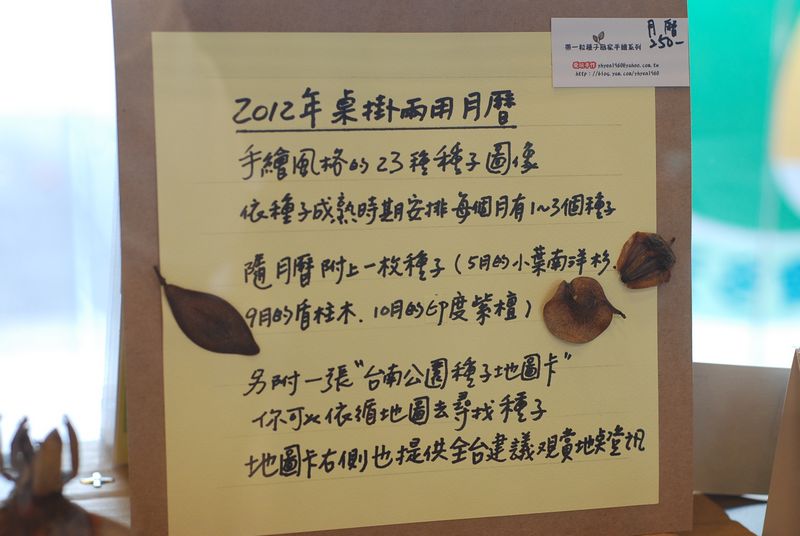 月曆
250-
帶一粒種子回家手繪系列
yhyea1960@yahoo.com.tw
http://blog.yam.com/yhyea1960
2012年桌掛兩用月曆
手繪風格的23種種子圖像
依種子成熟時期安排每個月有1~3個種子
隨月曆附上一枚種子(5月的小葉南洋杉.
9月的盾柱木.10月的印度紫檀)
另附一張"台南公園種子地圖卡"
你可以依循地圖去尋找種子
地圖卡右側也提供全台建議观賞地點資訊